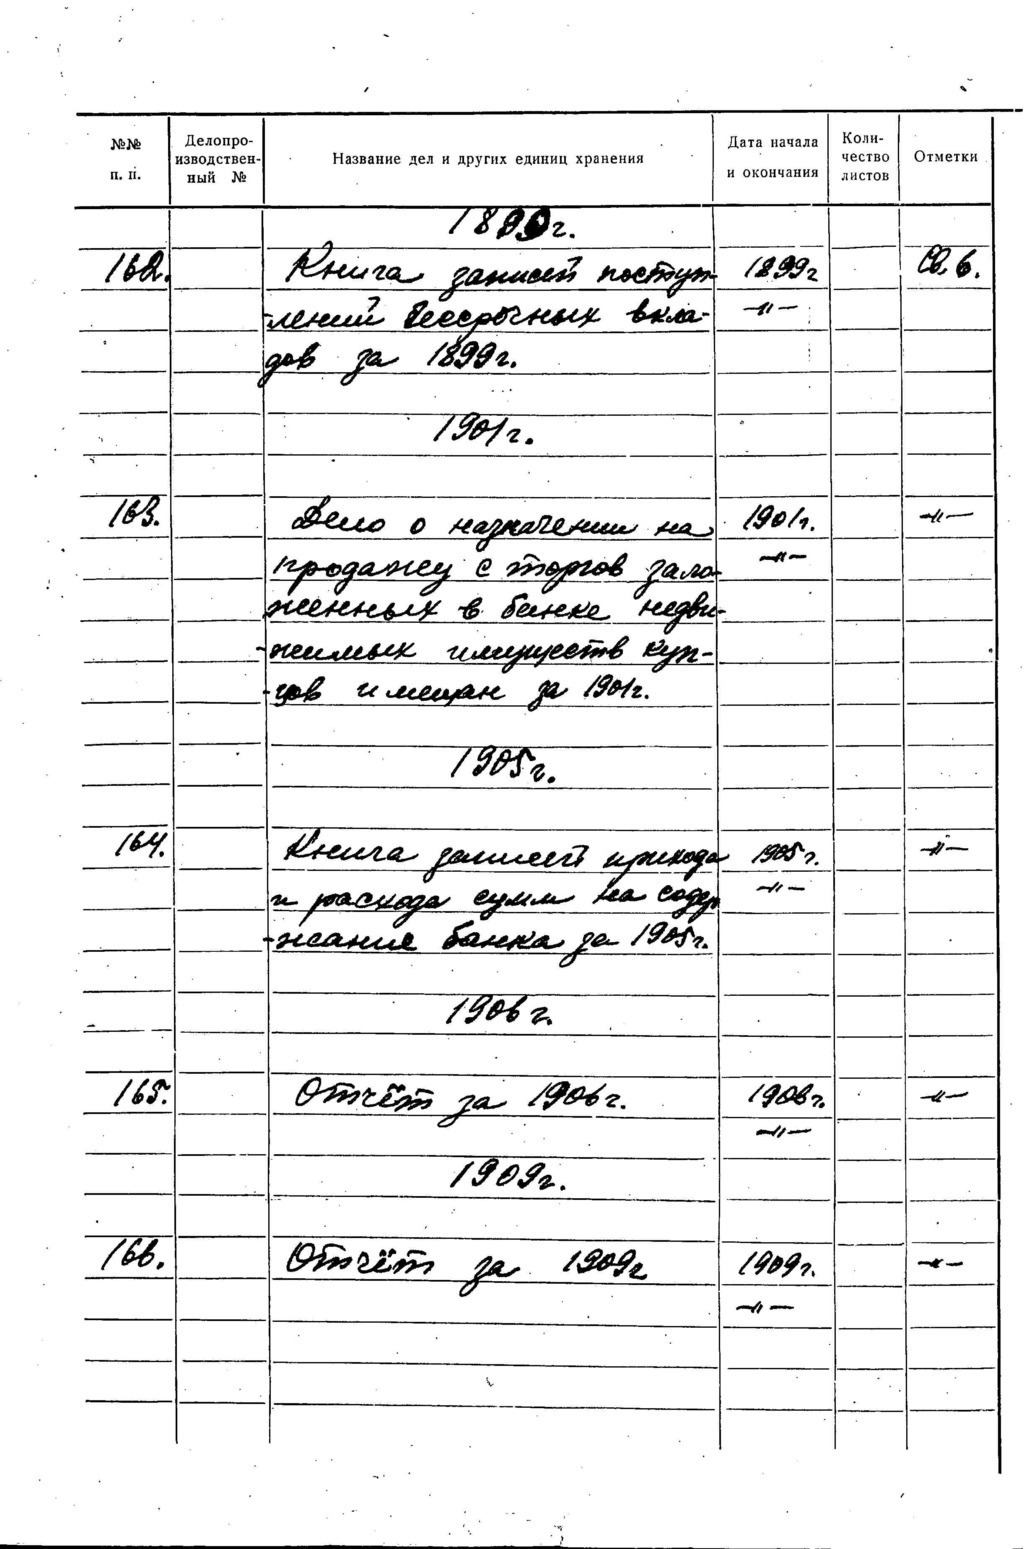 №№ п. п. Делопроизводственный № Название дел и других единиц хранения Дата начала и окончания Количество листов Отметки
1899г.
162. Книга записей поступ- 1899г Св. 6.
-лений бессрочных вкла- -"-
дов за 1899г.
1901г.
163. Дело о назначении на 1901г. -"-
продажу с торгов зало- -"-
женных в банке недви-
-жимых имуществ куп-
-цов и мещан за 1901г.
1905г.
164. Книга записей прихода 1905г. -"-
и расхода сумм на содер- -"-
-жание банка за 1905г.
1906г.
165. Отчёт за 1906г. 1906г. -"-
-"-
1909г.
166. Отчёт за 1909г 1909г. -"-
-"-